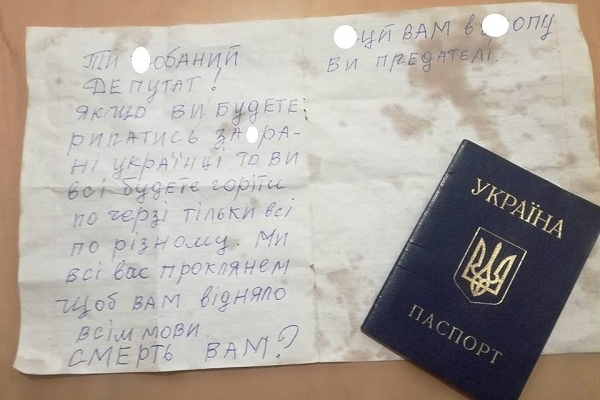 ТИ обаний
ДЕПУТАТ!
ЯКЩО ВИ БУДЕТЕ
РИПАТИСЬ ЗА РА-
НІ УКРАЇНЦІ ТО ВИ
всі будете горіти
по черзі тільки всі
по різному. Ми
всі вас проклянем
щоб вам відняло
всім мови.
СМЕРТЬ ВАМ?
уй ВАМ в опу
ВИ ПРЕДАТЕЛІ.
УКРАЇНА
ПАСПОРТ